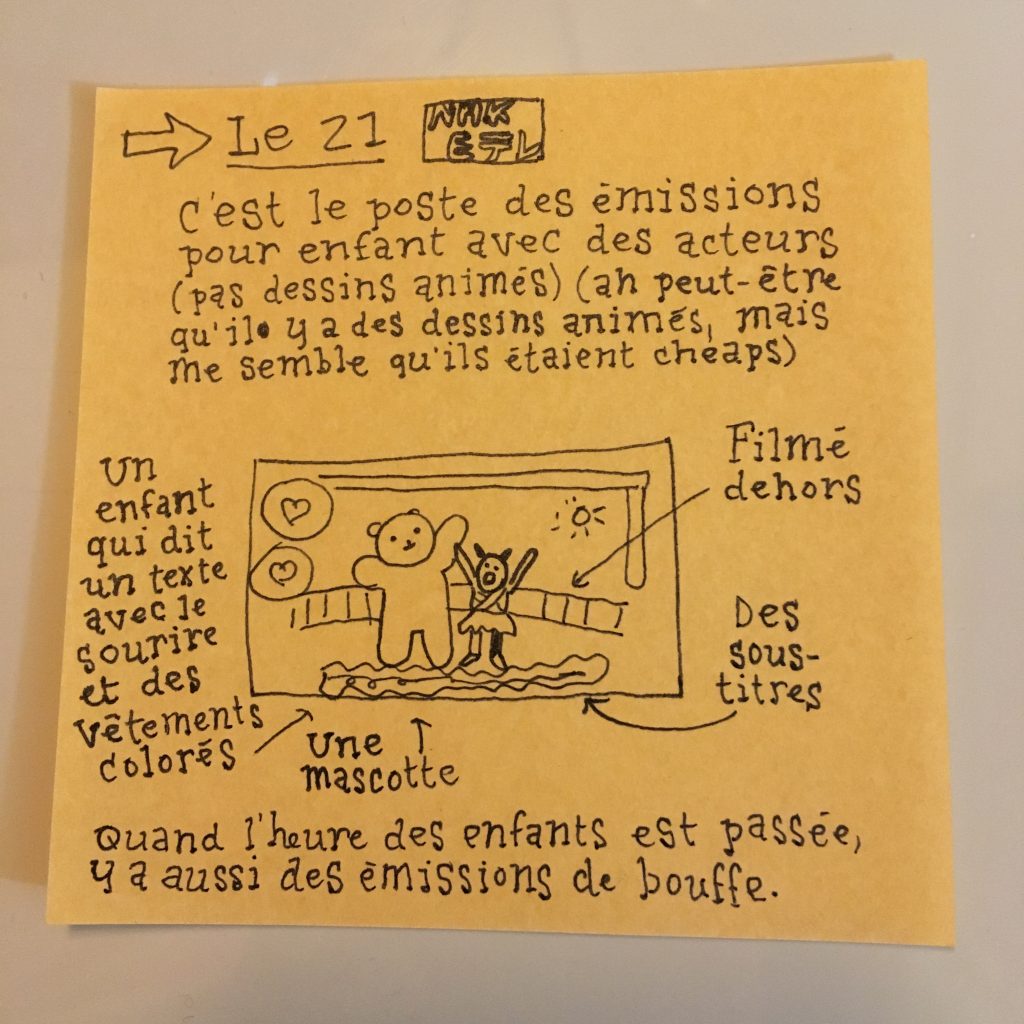 Le 21
NHK
Eテレ
C'est le poste des émissions
pour enfant avec des acteurs
(pas dessins animés) (ah peut-être
qu'il y a des dessins animés, mais
me semble qu'ils étaient cheaps)
Un
enfant
qui dit
un texte
avec le
sourire
et des
vêtements
colorés
Filmé
dehors
Des
sous-
titres
Une
mascotte
Quand l'heure des enfants est passée,
y a aussi des émissions de bouffe.